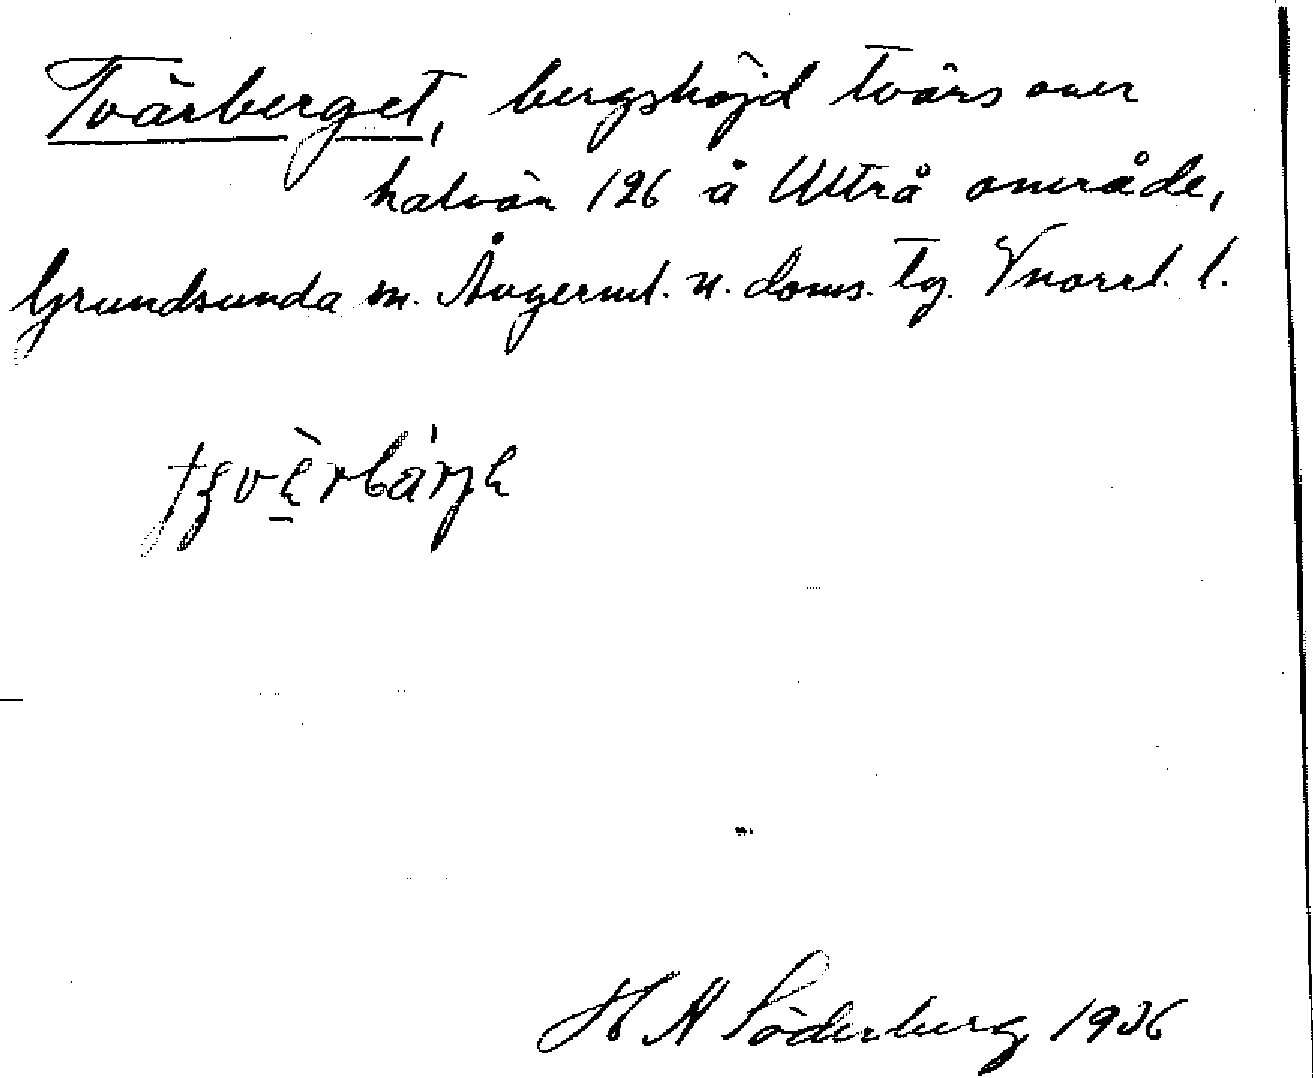 Tvärberget, bergshöjd tvärs över
halvön 126 å Uttrå område,
Grundsunda sn. Ångerml. n. doms. tg. Vnorrl. l.
H A Söderberg 1936